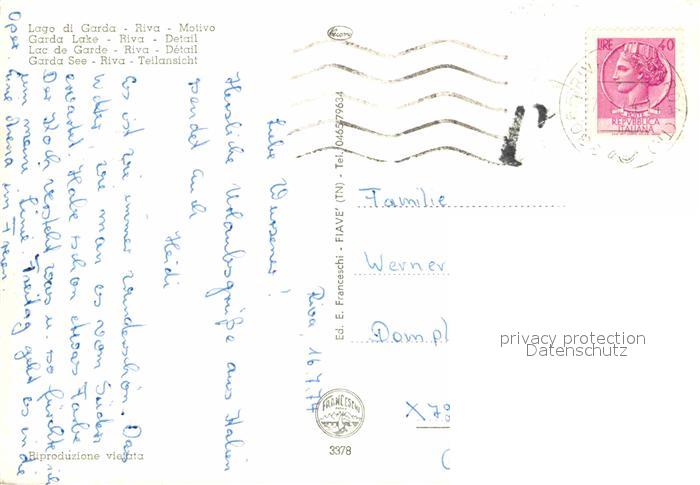 Lago di Garda - Riva - Motivo
Garda Lake - Riva - Detail
Lac de Garde - Riva - Détail
Garda See - Riva - Teilansicht
Riva, 16.7.74
Liebe
Herzliche Urlaubsgrüße aus Italien
sendet euch
Heidi
Es ist wie immer wunderschön. Das
Wetter, wie man es vom Süden
erwartet. Habe schon etwas Farbe
Der Koch versteht was u. so fürchte ich
um meine Linie. Freitag geht es in die
Oper. Arena im Freien.
Riproduzione vietata
Ed. E. Franceschi - FIAVE' (TN) - Tel. 0465/79634
FRANCESCHI
3378
LIRE 40
POSTE
REPVBBLICA
ITALIANA
Familie
Werner
X
privacy protection
Datenschutz